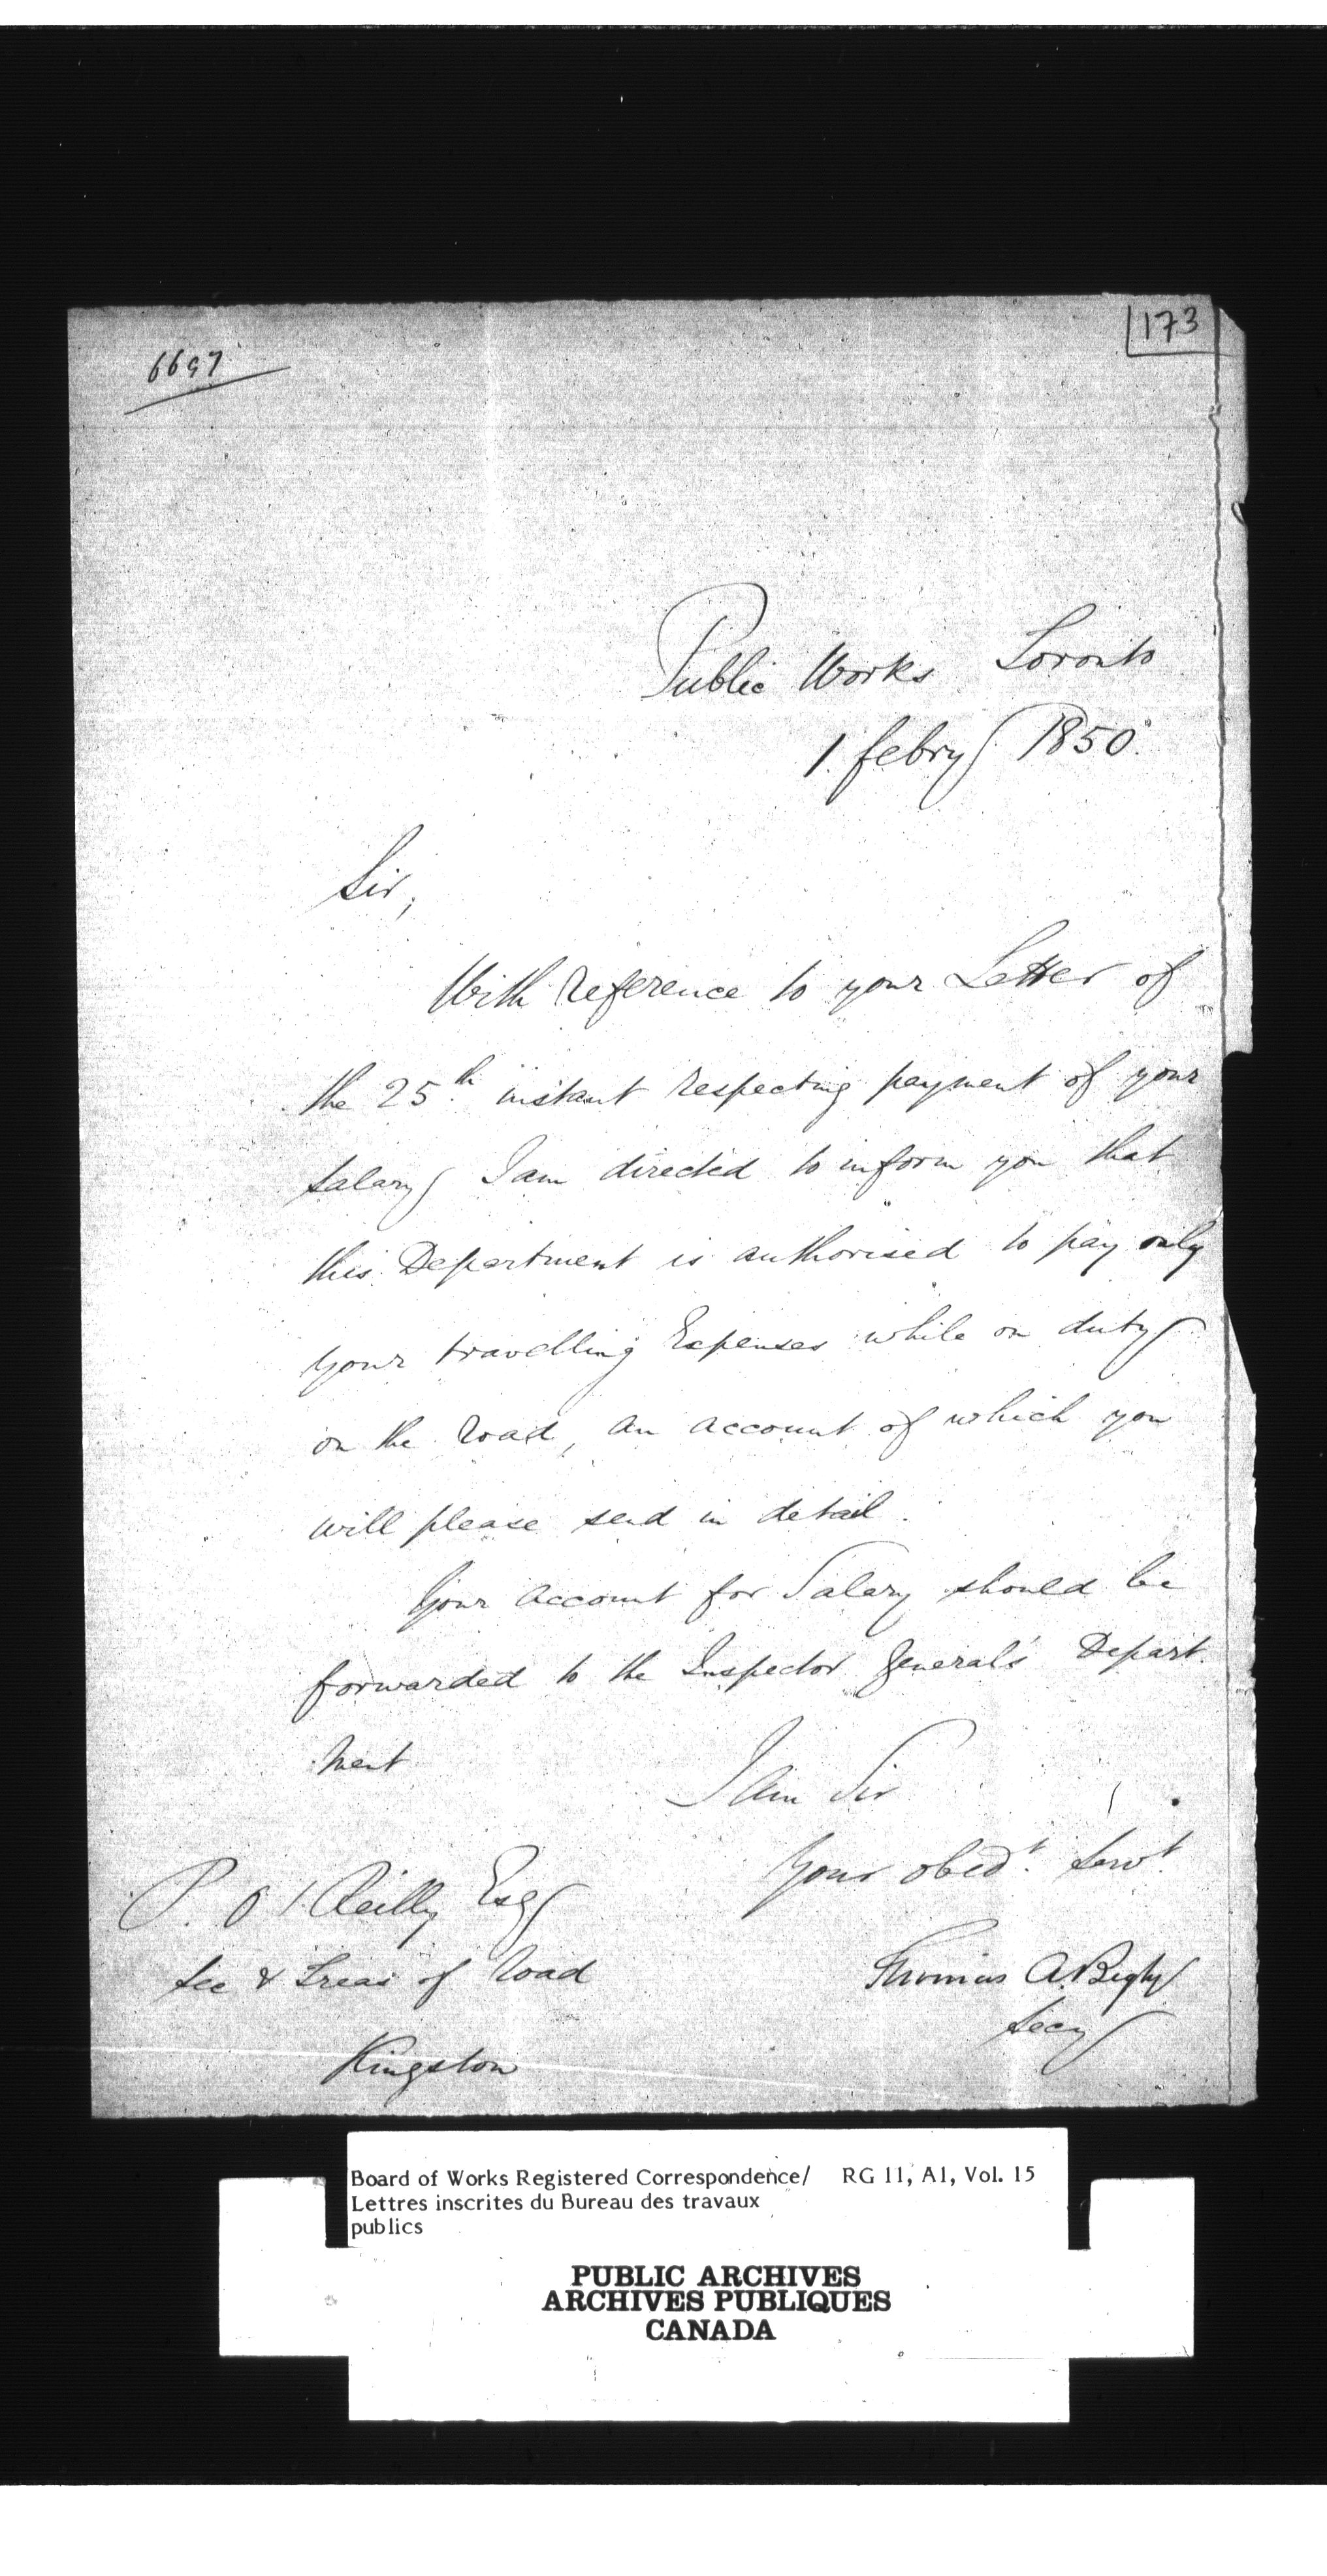 173
6697
Public Works Toronto
1. febry 1850.
Sir,
With reference to your Letter of
the 25th instant respecting payment of your
Salary I am directed to inform you that
this Department is authorised to pay only
your travelling Expenses while on duty
on the Road, an account of which you
will please send in detail.
Your account for Salary should be
forwarded to the Inspector General's Depart
ment
I am Sir
Your obedt. Servt.
P. O'Reilly Esq
Thomas A. Begly
Sec & Treas of Road
Secy
Kingston
Board of Works Registered Correspondence/ RG 11, A1, Vol. 15
Lettres inscrites du Bureau des travaux
publics
PUBLIC ARCHIVES
ARCHIVES PUBLIQUES
CANADA